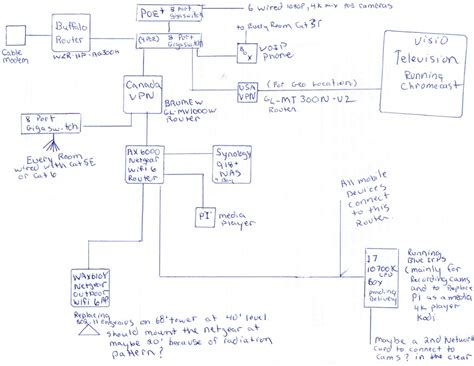 POE+
8 Port
Gigaswitch
6 wired 1080P, 4K mix POE cameras
Buffalo
Router
WZR-HP-AG300H
Cable
modem
8 Port
Gigaswitch
to Every Room Cat 3r
VOIP
Phone
BOX
VISIO
Television
Running
Chromecast
Canada
VPN
BRUME W
GL-MV1000W
Router
USA
VPN
(For Geo Location)
GL-MT300N-V2
Router
8 Port
Gigaswitch
Every Room
wired with Cat 5E
or Cat 6
AX6000
Netgear
Wifi 6
Router
Synology
918+
NAS
4 Bay
PI
media
Player
All mobile
Devices
connect
to this
Router.
WAX610Y
Netgear
outdoor
Wifi 6 AP
Replacing
802.11 engenius on 68' tower at 40' level
should mount the netgear at
maybe 20' because of radiation
pattern?
I7
10700K
CPU
BOX
pending
Delivery
Running
Blue IRIS
(mainly for
Recording cams
and to Replace
PI as a media
4K player
Kodi.
maybe a 2nd Network
Card to connect to
cams? in the clear